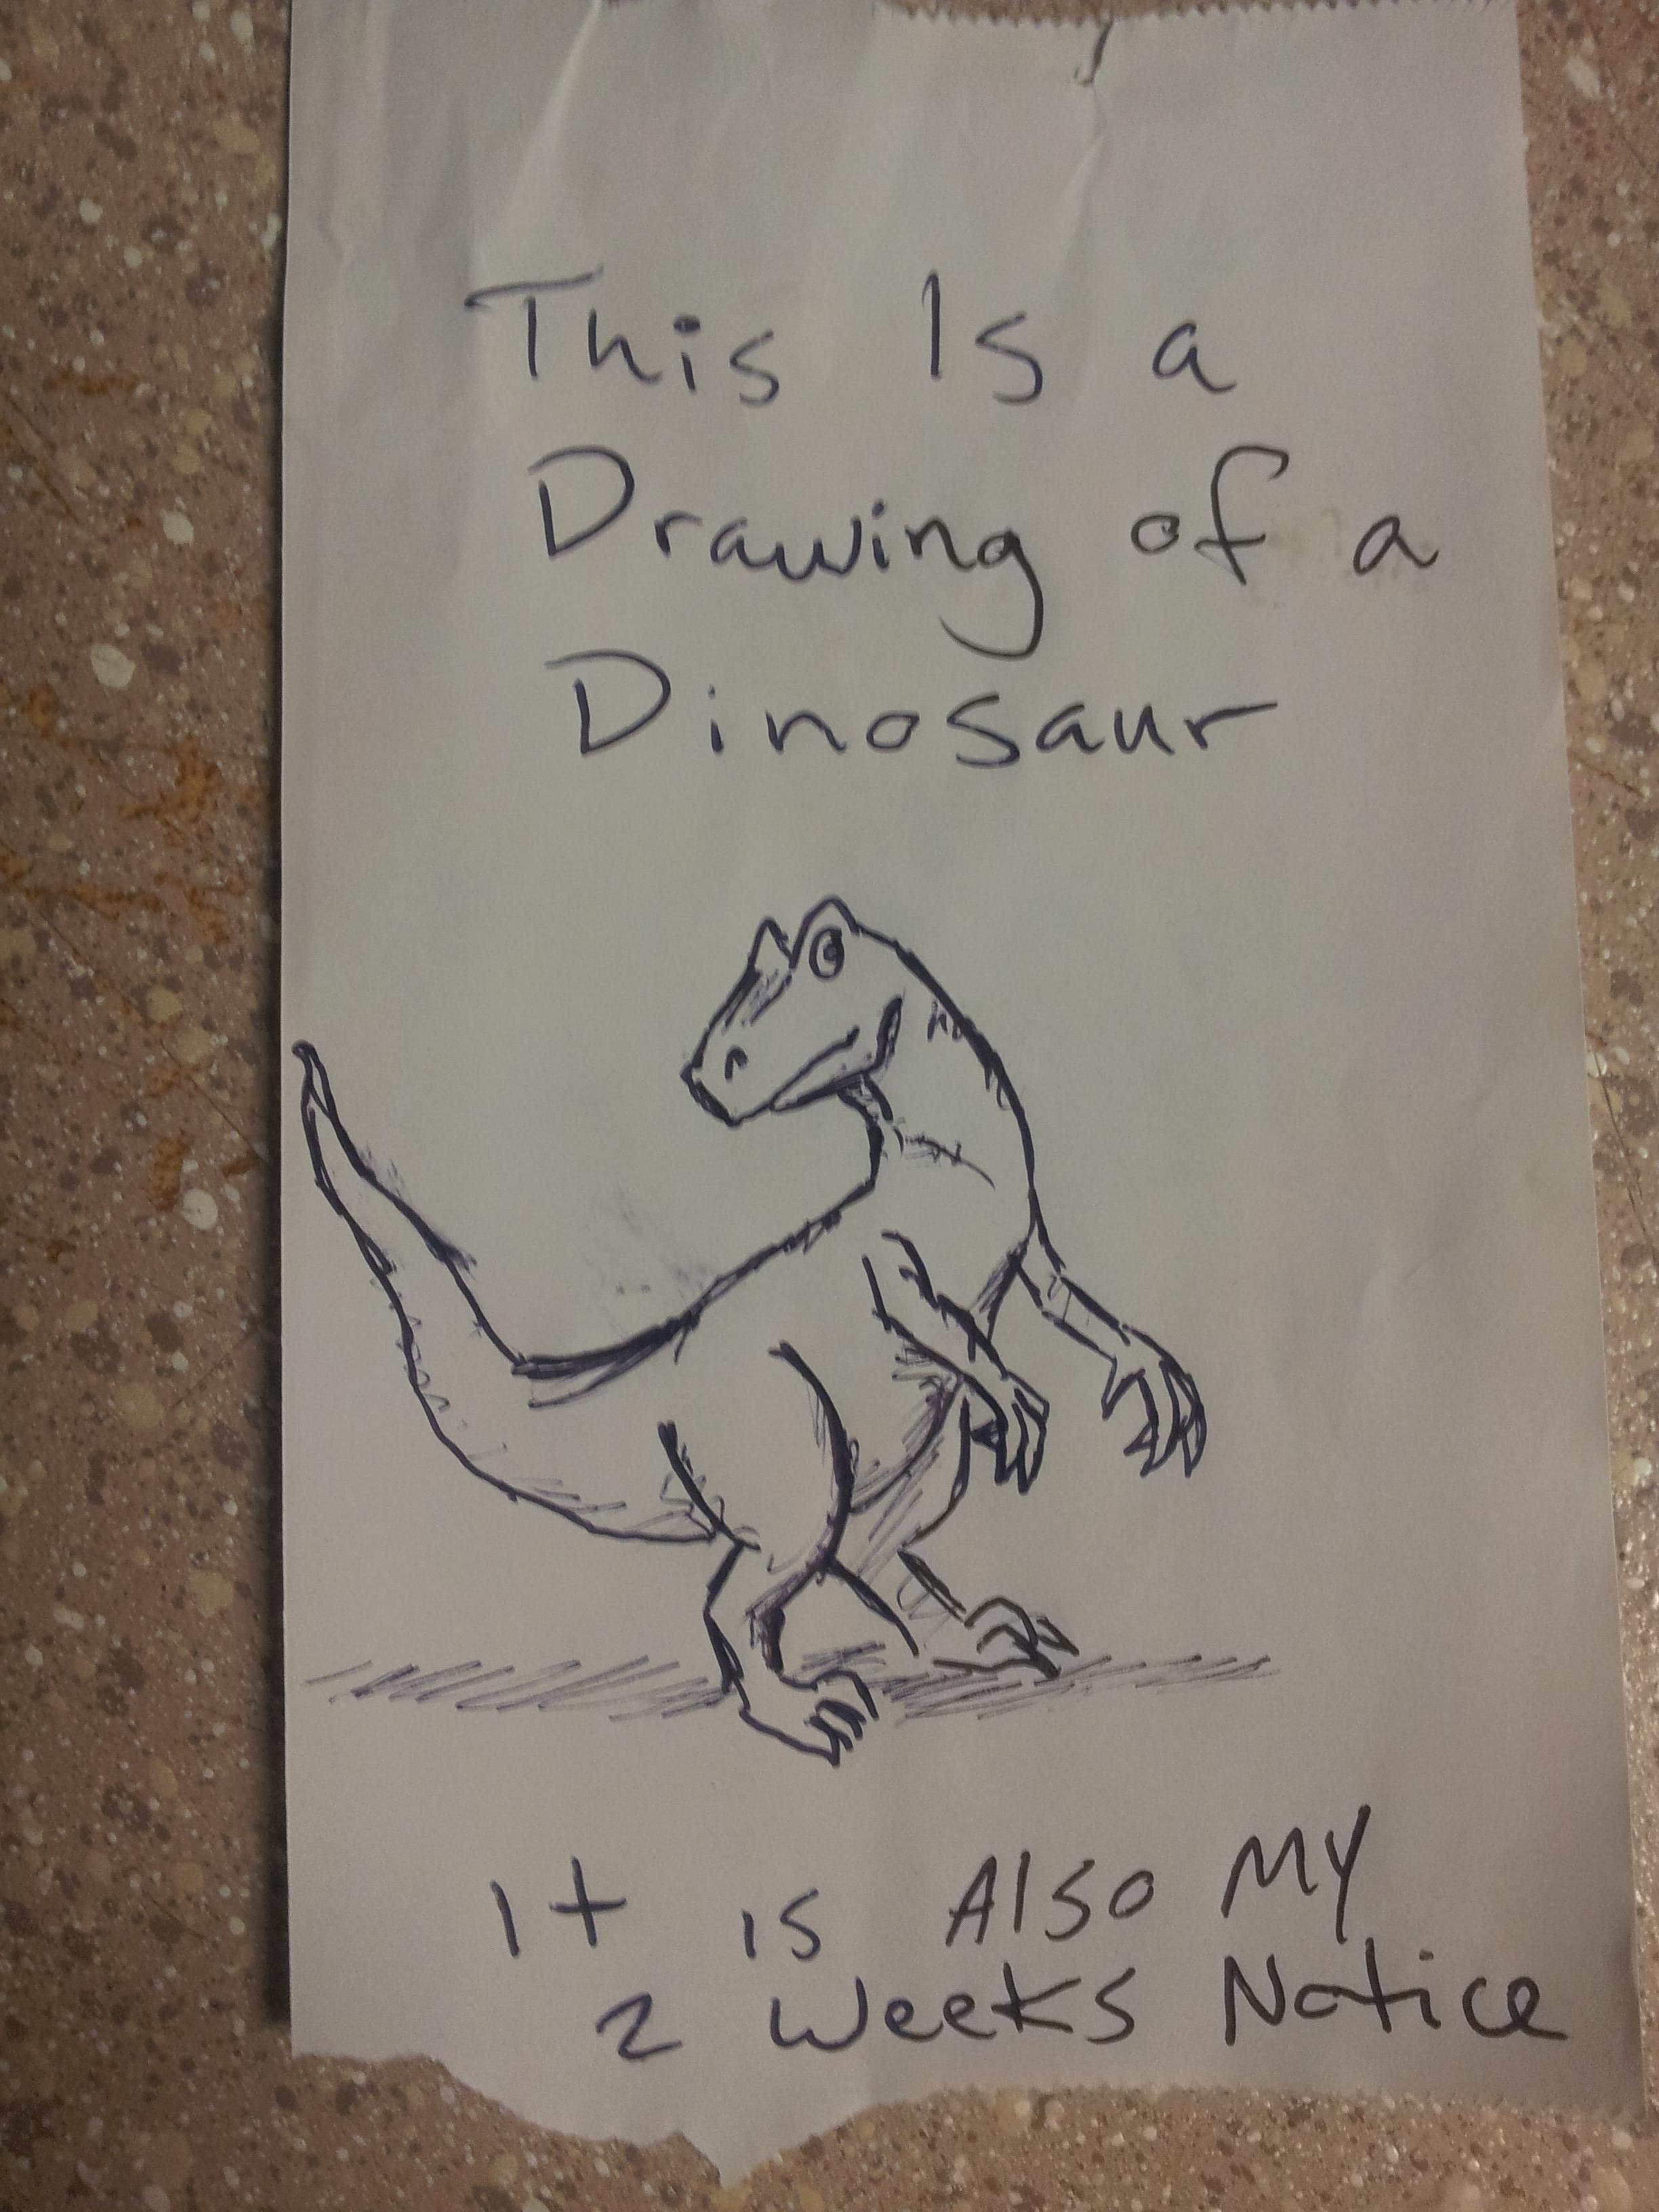 This Is a
Drawing of a
Dinosaur
It is Also My
2 Weeks Notice